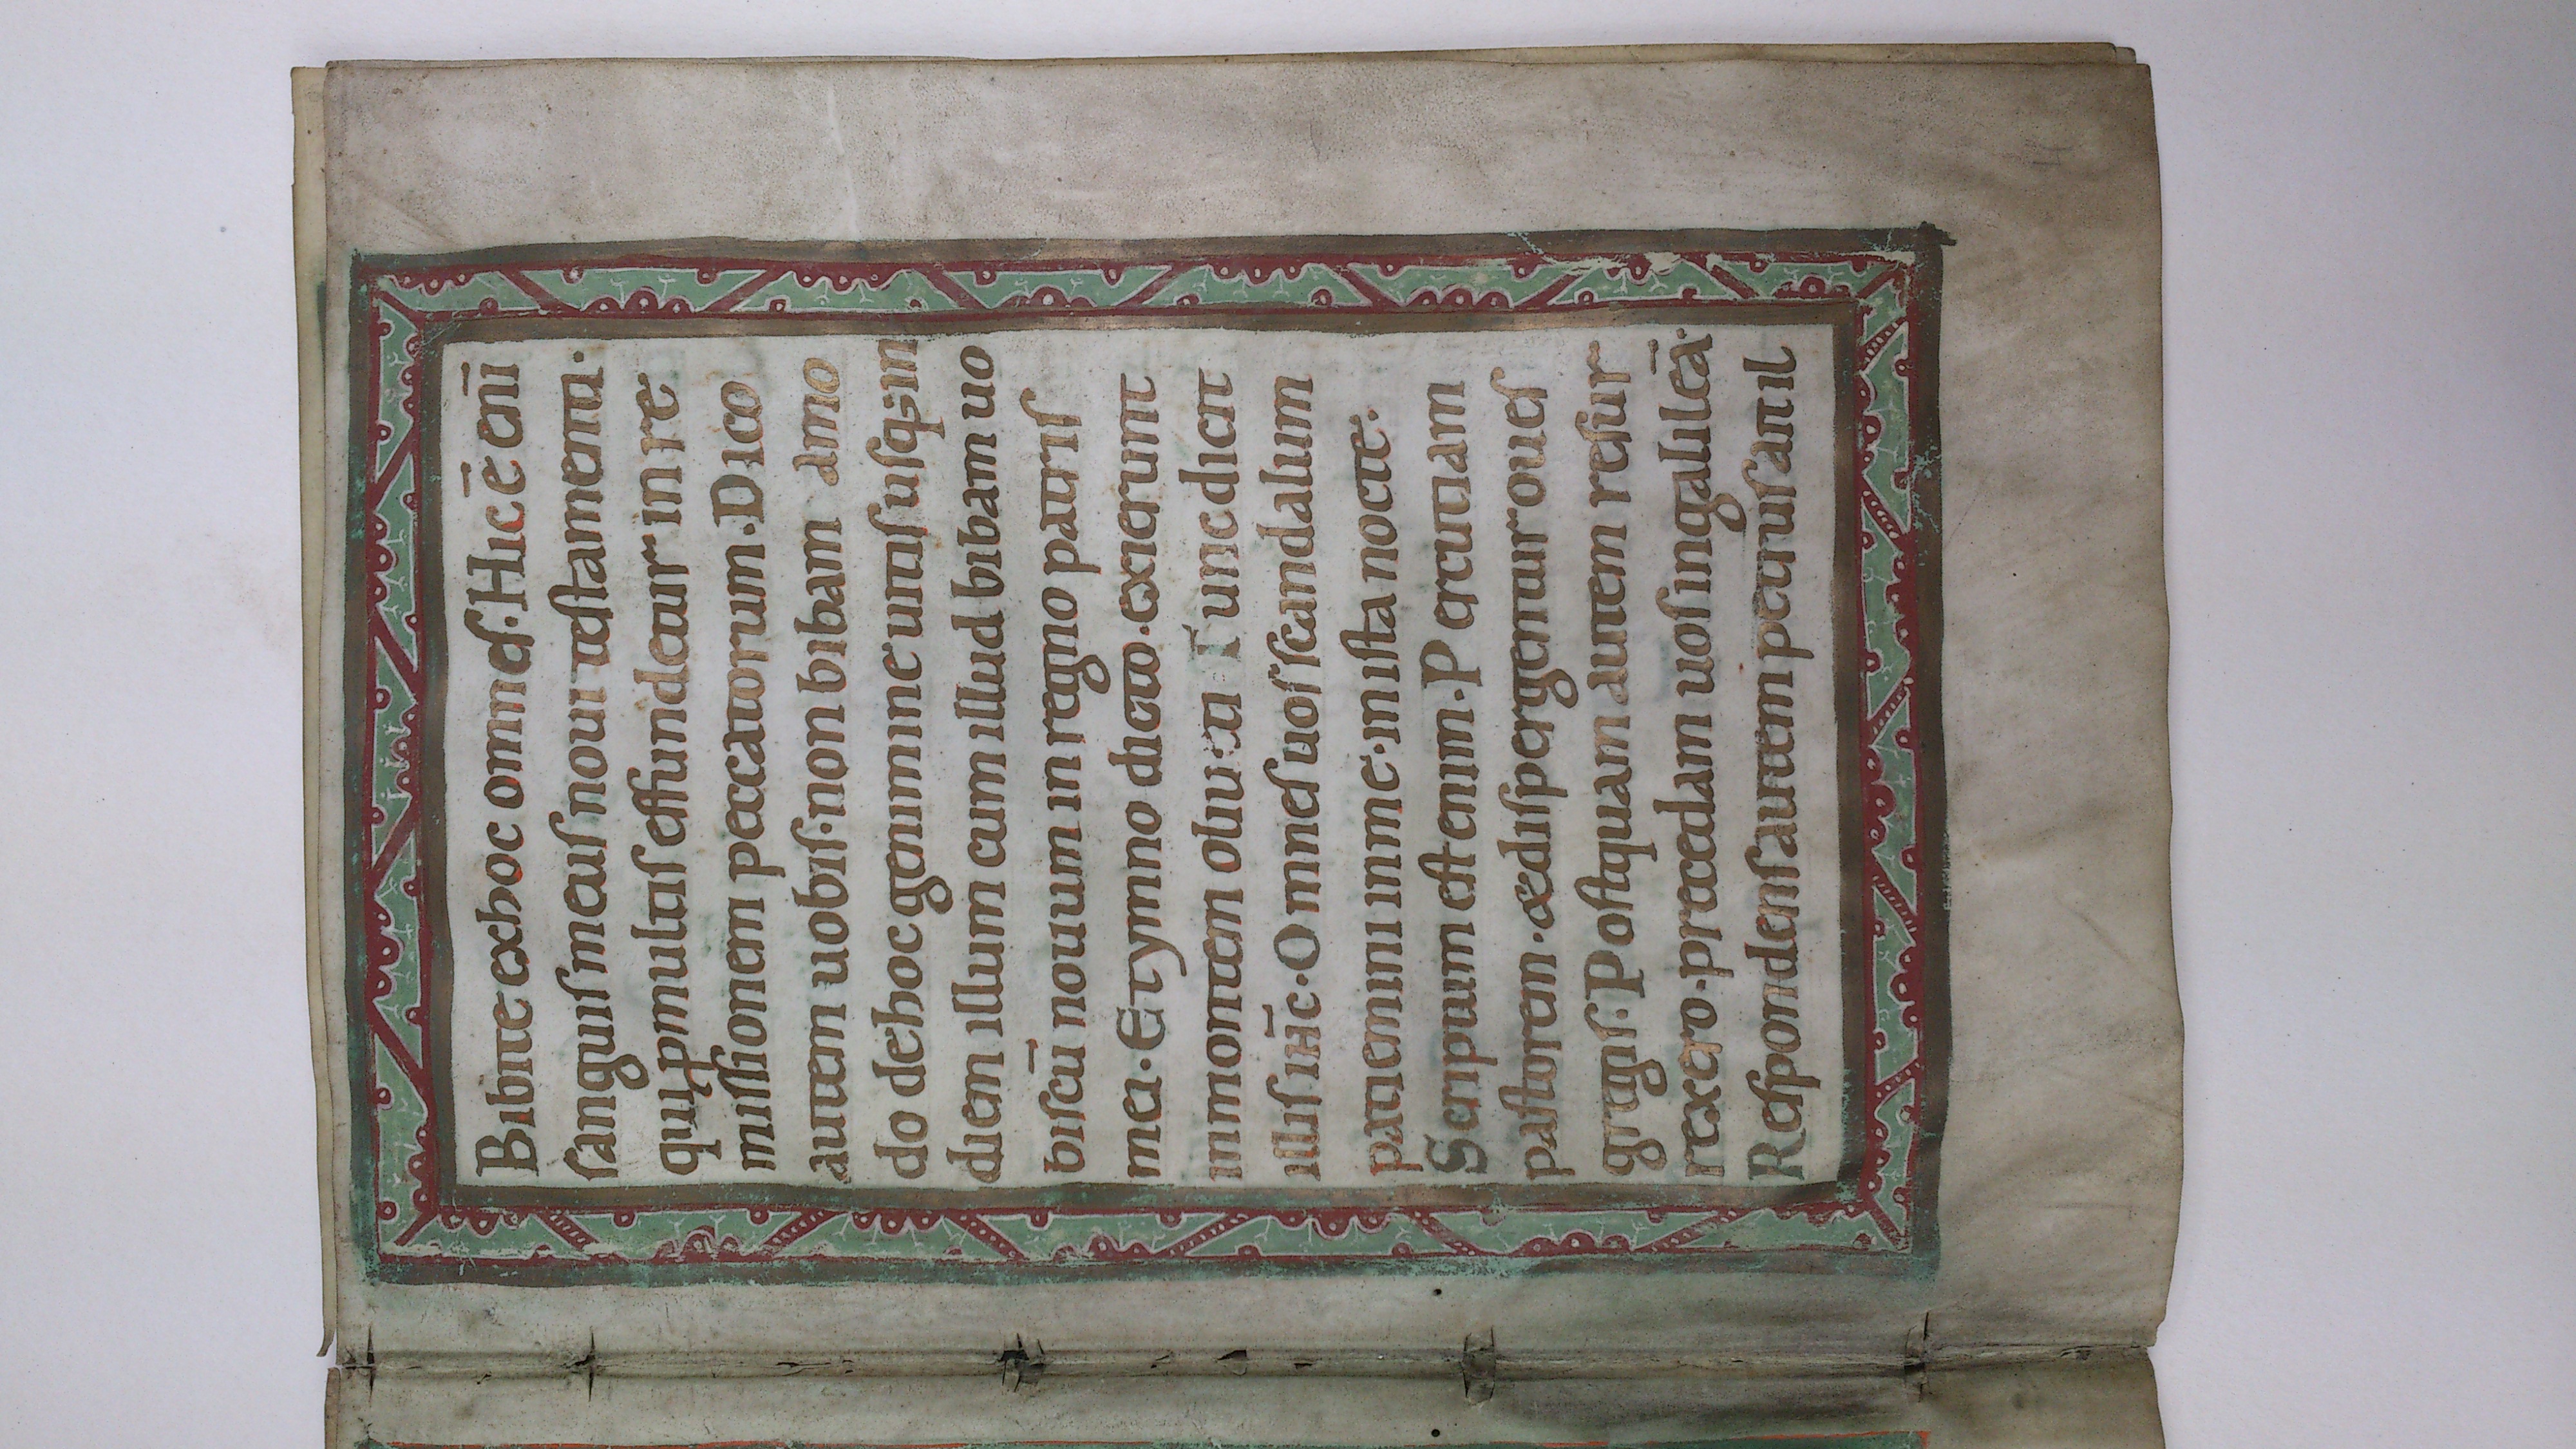 Bibite exhoc omnes. Hic ē eni̅
sanguis meus noui testamenti.
qui ꝓmultis effundetur in re
missionem peccatorum. Dico
autem uobis. non bibam amo
do dehoc genimine uitis usq; in
diem illum cum illud bibam uo
biscū nouum in regno patris
mei. Et ymno dicto. exierunt
inmontem oliu&i Tunc dicit
illis ihc̄. Omnes uos scandalum
patiemini inme. inista nocte.
Scriptum est enim. Percutiam
pastorem. & dispergentur oues
gregis. Postquam autem resur
rexero. precedam uos ingalileā.
Respondens autem petrus ait il